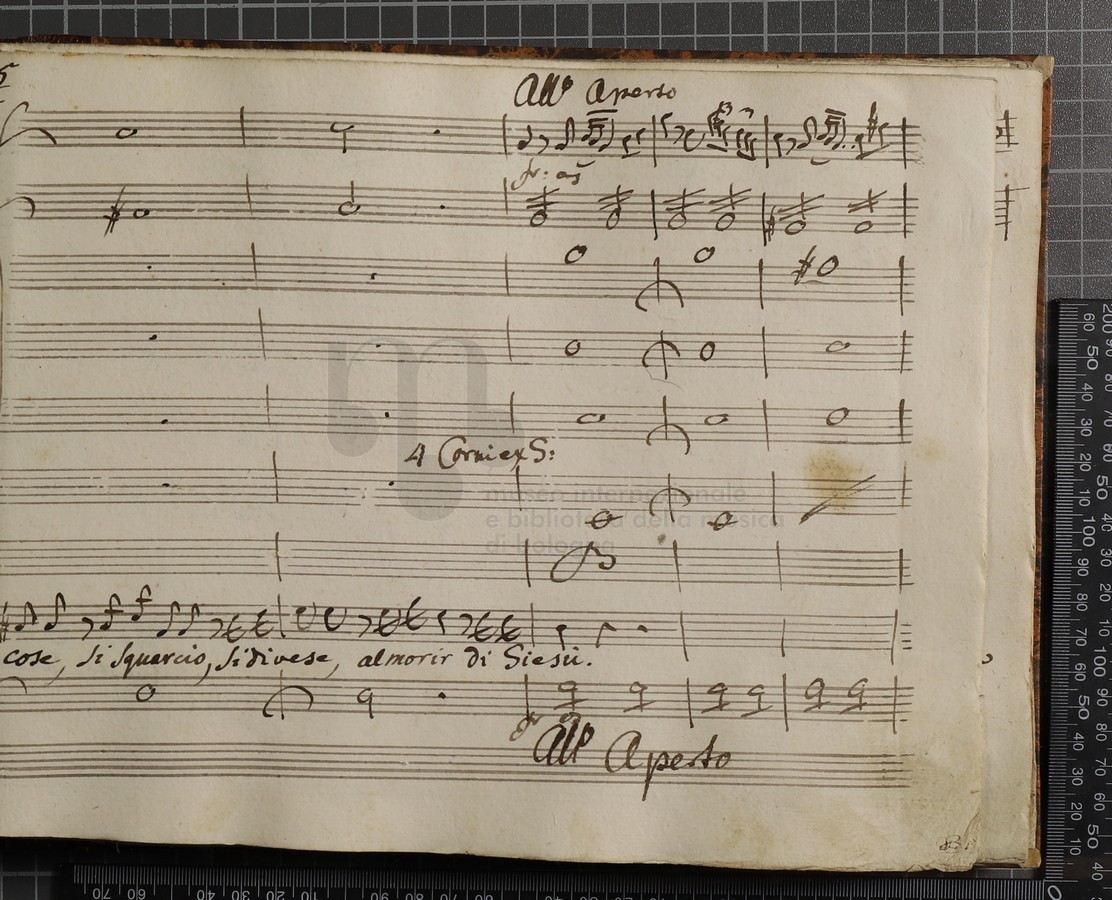 All° Aperto
fr: as
4 Corni ex S:
museo internazionale
e biblioteca della musica
di bologna
cose, si squarcio, si divese, al morir di Giesù.
All° Aperto